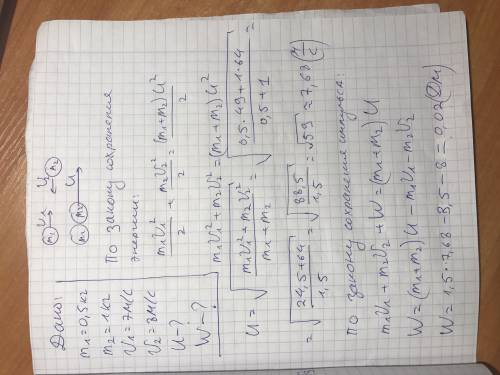 Дано:
m₁=0,5кг
m₂=1кг
V₁=7м/с
V₂=8м/с
U-?
W-?
m₁ V₁ V₂ m₂
m₁ m₂ U
По закону сохранения
энергии:
m₁V₁²/2 + m₂V₂²/2 = (m₁+m₂)U²/2
m₁V₁²+m₂V₂²=(m₁+m₂)U²
U = √((m₁V₁²+m₂V₂²)/(m₁+m₂)) = √((0,5·49+1·64)/(0,5+1)) =
= √((24,5+64)/1,5) = √(88,5/1,5) = √59 ≈ 7,68 (м/с)
По закону сохранения импульса:
m₁V₁+m₂V₂+W=(m₁+m₂)U
W=(m₁+m₂)U-m₁V₁-m₂V₂
W=1,5·7,68-3,5-8=0,02(Дж)